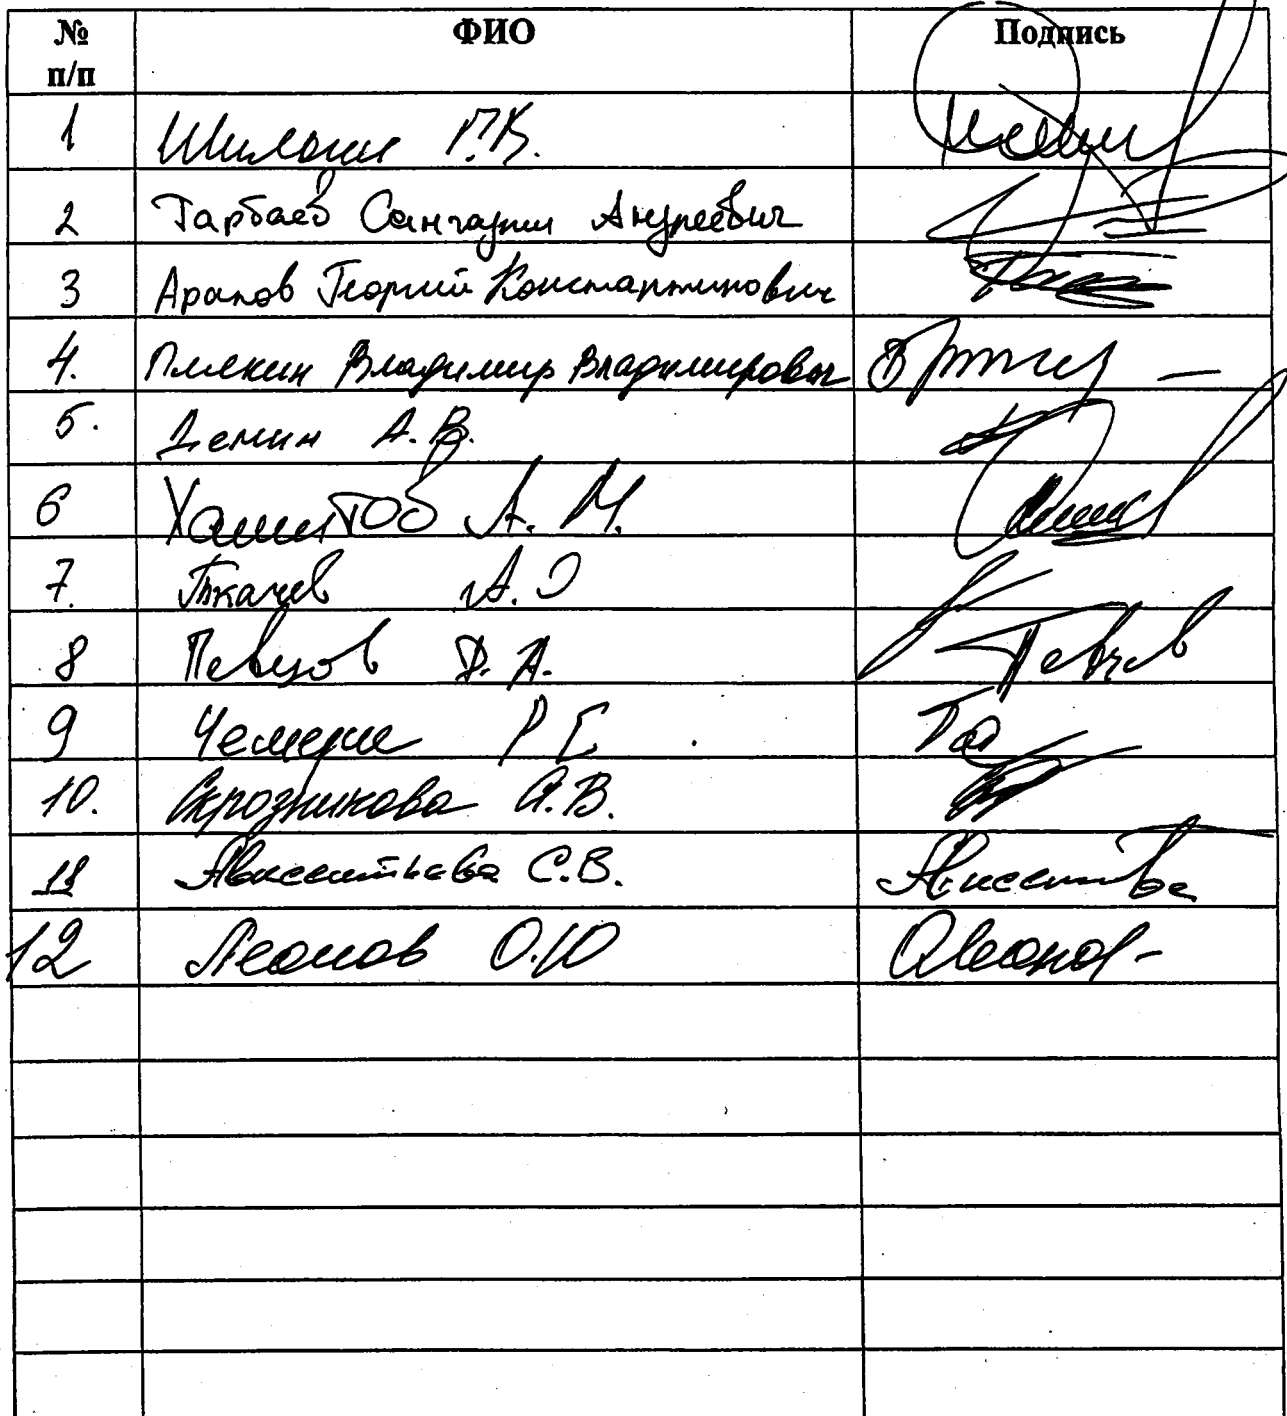 № п/п ФИО Подпись
1 Шилкин Г.К.
2 Тарбаев Сангаджи Андреевич
3 Арапов Георгий Константинович
4. Плякин Владимир Владимирович
5. Демин А.В.
6 Хамитов А.М.
7. Ткачев А.О
8 Певцов Д.А. Певцов
9 Чемерис Р Е
10. Скрозникова А.В.
11 Авксентьева С.В.
12 Леонов О.Ю